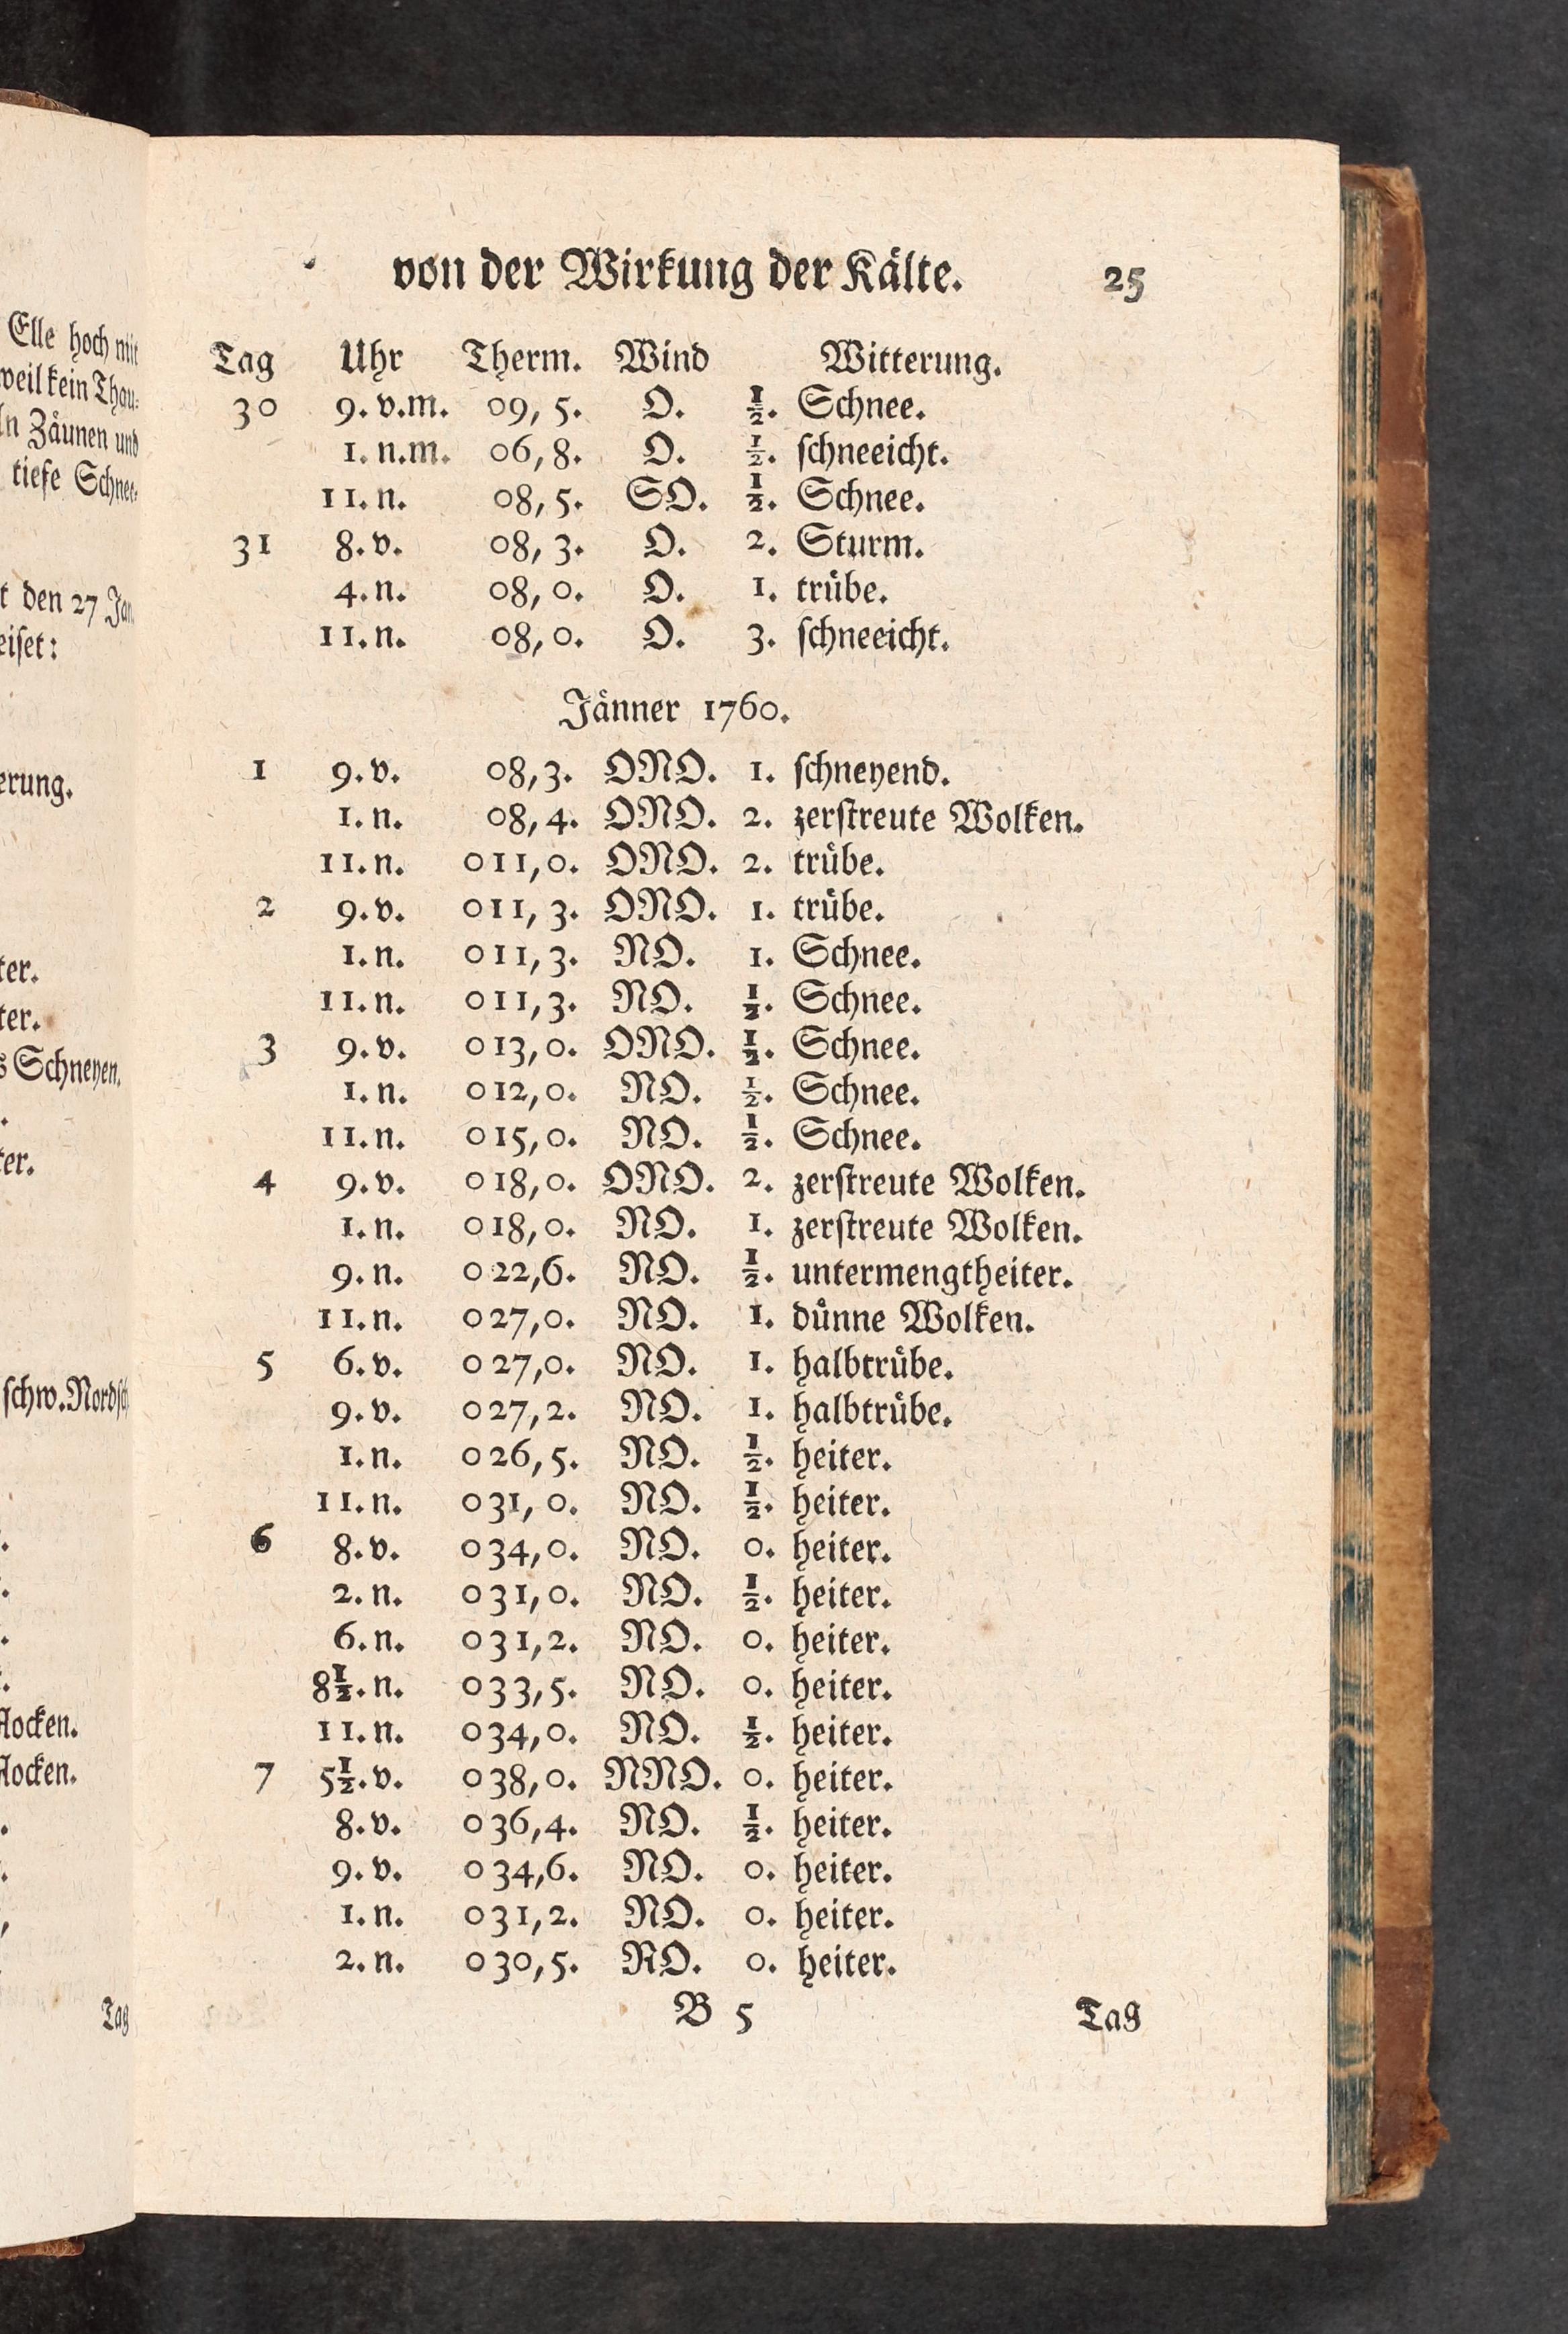 von der Wirkung der Kälte. 25
Tag Uhr Therm. Wind Witterung.
30 9. v.m. 09, 5. O. ½. Schnee.
1. n.m. 06, 8. O. ½. schneeicht.
11. n. 08, 5. SO. ½. Schnee.
31 8. v. 08, 3. O. 2. Sturm.
4. n. 08, 0. O. 1. trübe.
11. n. 08, 0. O. 3. schneeicht.
Jänner 1760.
1 9. v. 08, 3. ONO. 1. schneyend.
1. n. 08, 4. ONO. 2. zerstreute Wolken.
11. n. 011, 0. ONO. 2. trübe.
2 9. v. 011, 3. ONO. 1. trübe.
1. n. 011, 3. NO. 1. Schnee.
11. n. 011, 3. NO. ½. Schnee.
3 9. v. 013, 0. ONO. ½. Schnee.
1. n. 012, 0. NO. ½. Schnee.
11. n. 015, 0. NO. ½. Schnee.
4 9. v. 018, 0. ONO. 2. zerstreute Wolken.
1. n. 018, 0. NO. 1. zerstreute Wolken.
9. n. 022,6. NO. ½. untermengtheiter.
11. n. 027,0. NO. 1. dünne Wolken.
5 6. v. 027,0. NO. 1. halbtrübe.
9. v. 027,2. NO. 1. halbtrübe.
1. n. 026, 5. NO. ½. heiter.
11. n. 031, 0. NO. ½. heiter.
6 8. v. 034,0. NO. 0. heiter.
2. n. 031,0. NO. ½. heiter.
6. n. 031,2. NO. 0. heiter.
8½. n. 033,5. NO. 0. heiter.
11. n. 034,0. NO. ½. heiter.
7 5½. v. 038,0. NNO. 0. heiter.
8. v. 036,4. NO. ½. heiter.
9. v. 034,6. NO. 0. heiter.
1. n. 031,2. NO. 0. heiter.
2. n. 030,5. RO. 0. heiter.
B 5 Tag
Elle hoch mit
weil kein Thau-
Zäunen und
tiefe Schnee-
den 27 Jan.
Schneyen.
schw.
Tag